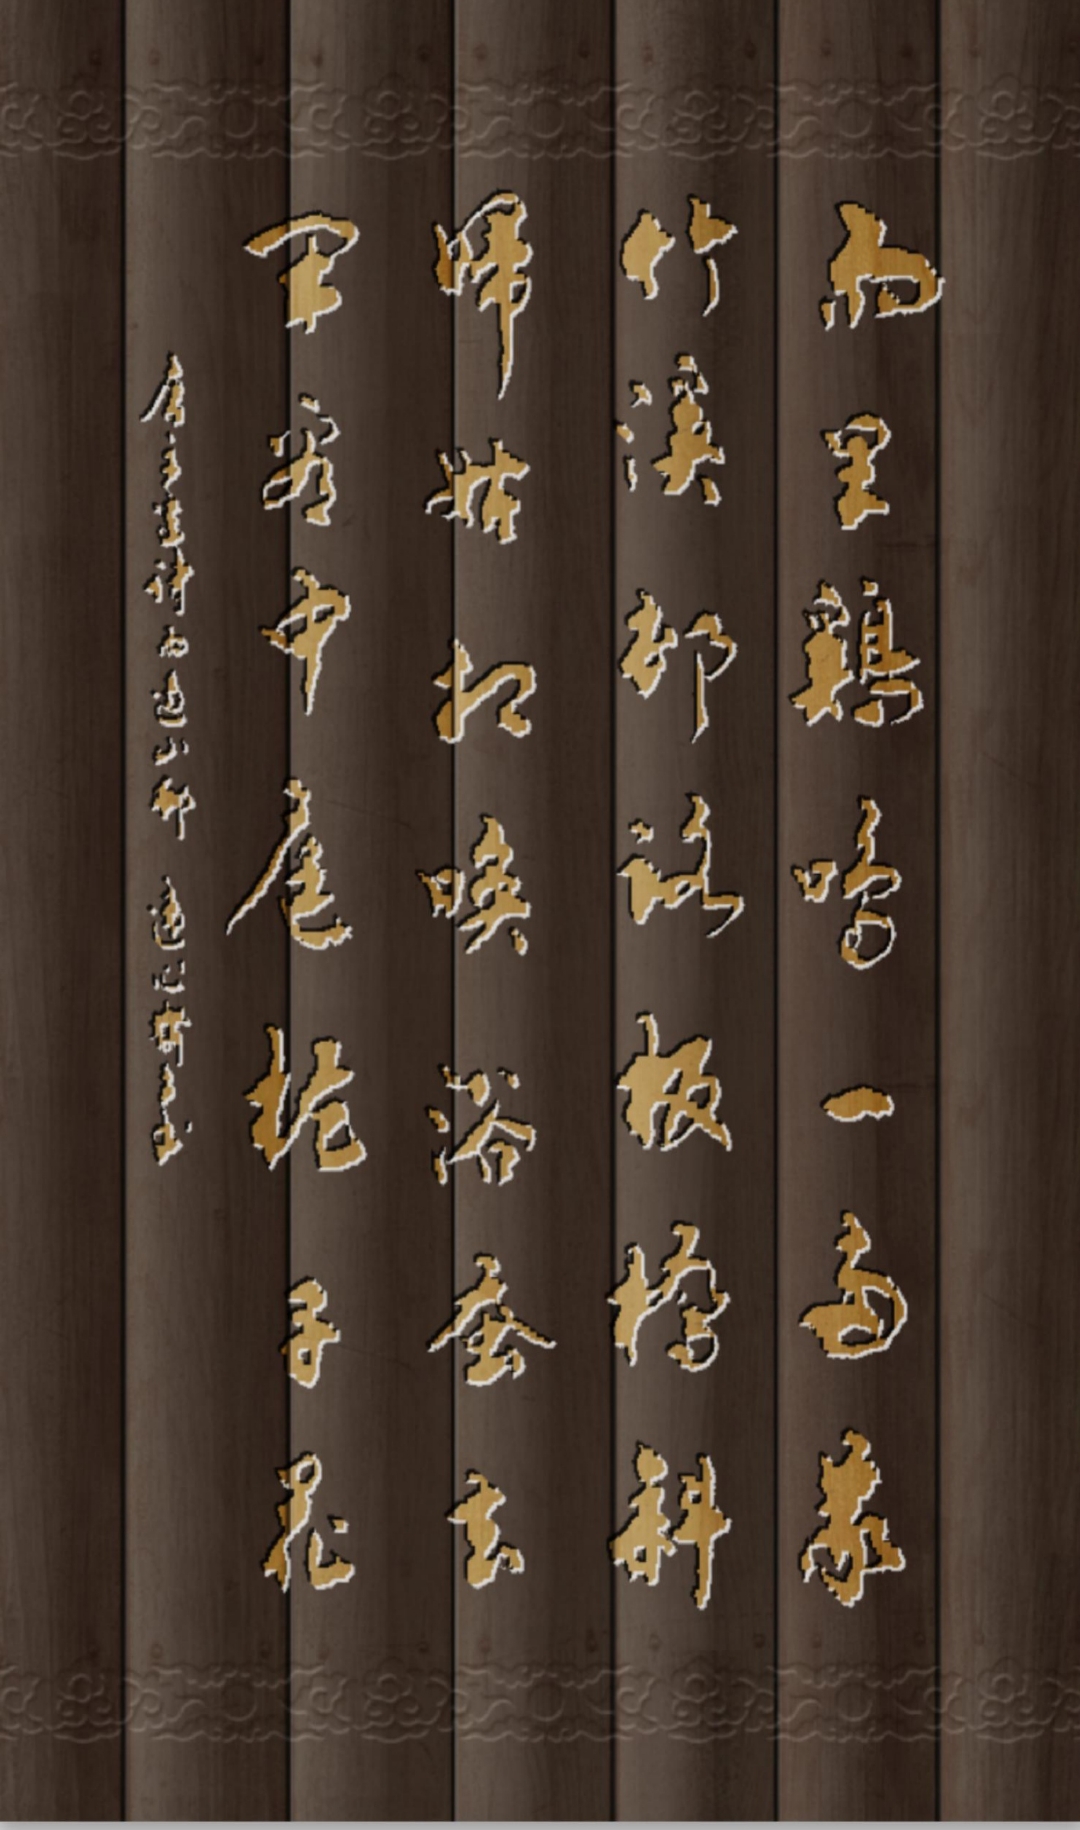 雨里鷄鳴一兩家
竹溪邨路板橋斜
婦姑相喚浴蚕去
闲看中庭栀子花
唐王建詩雨過山村